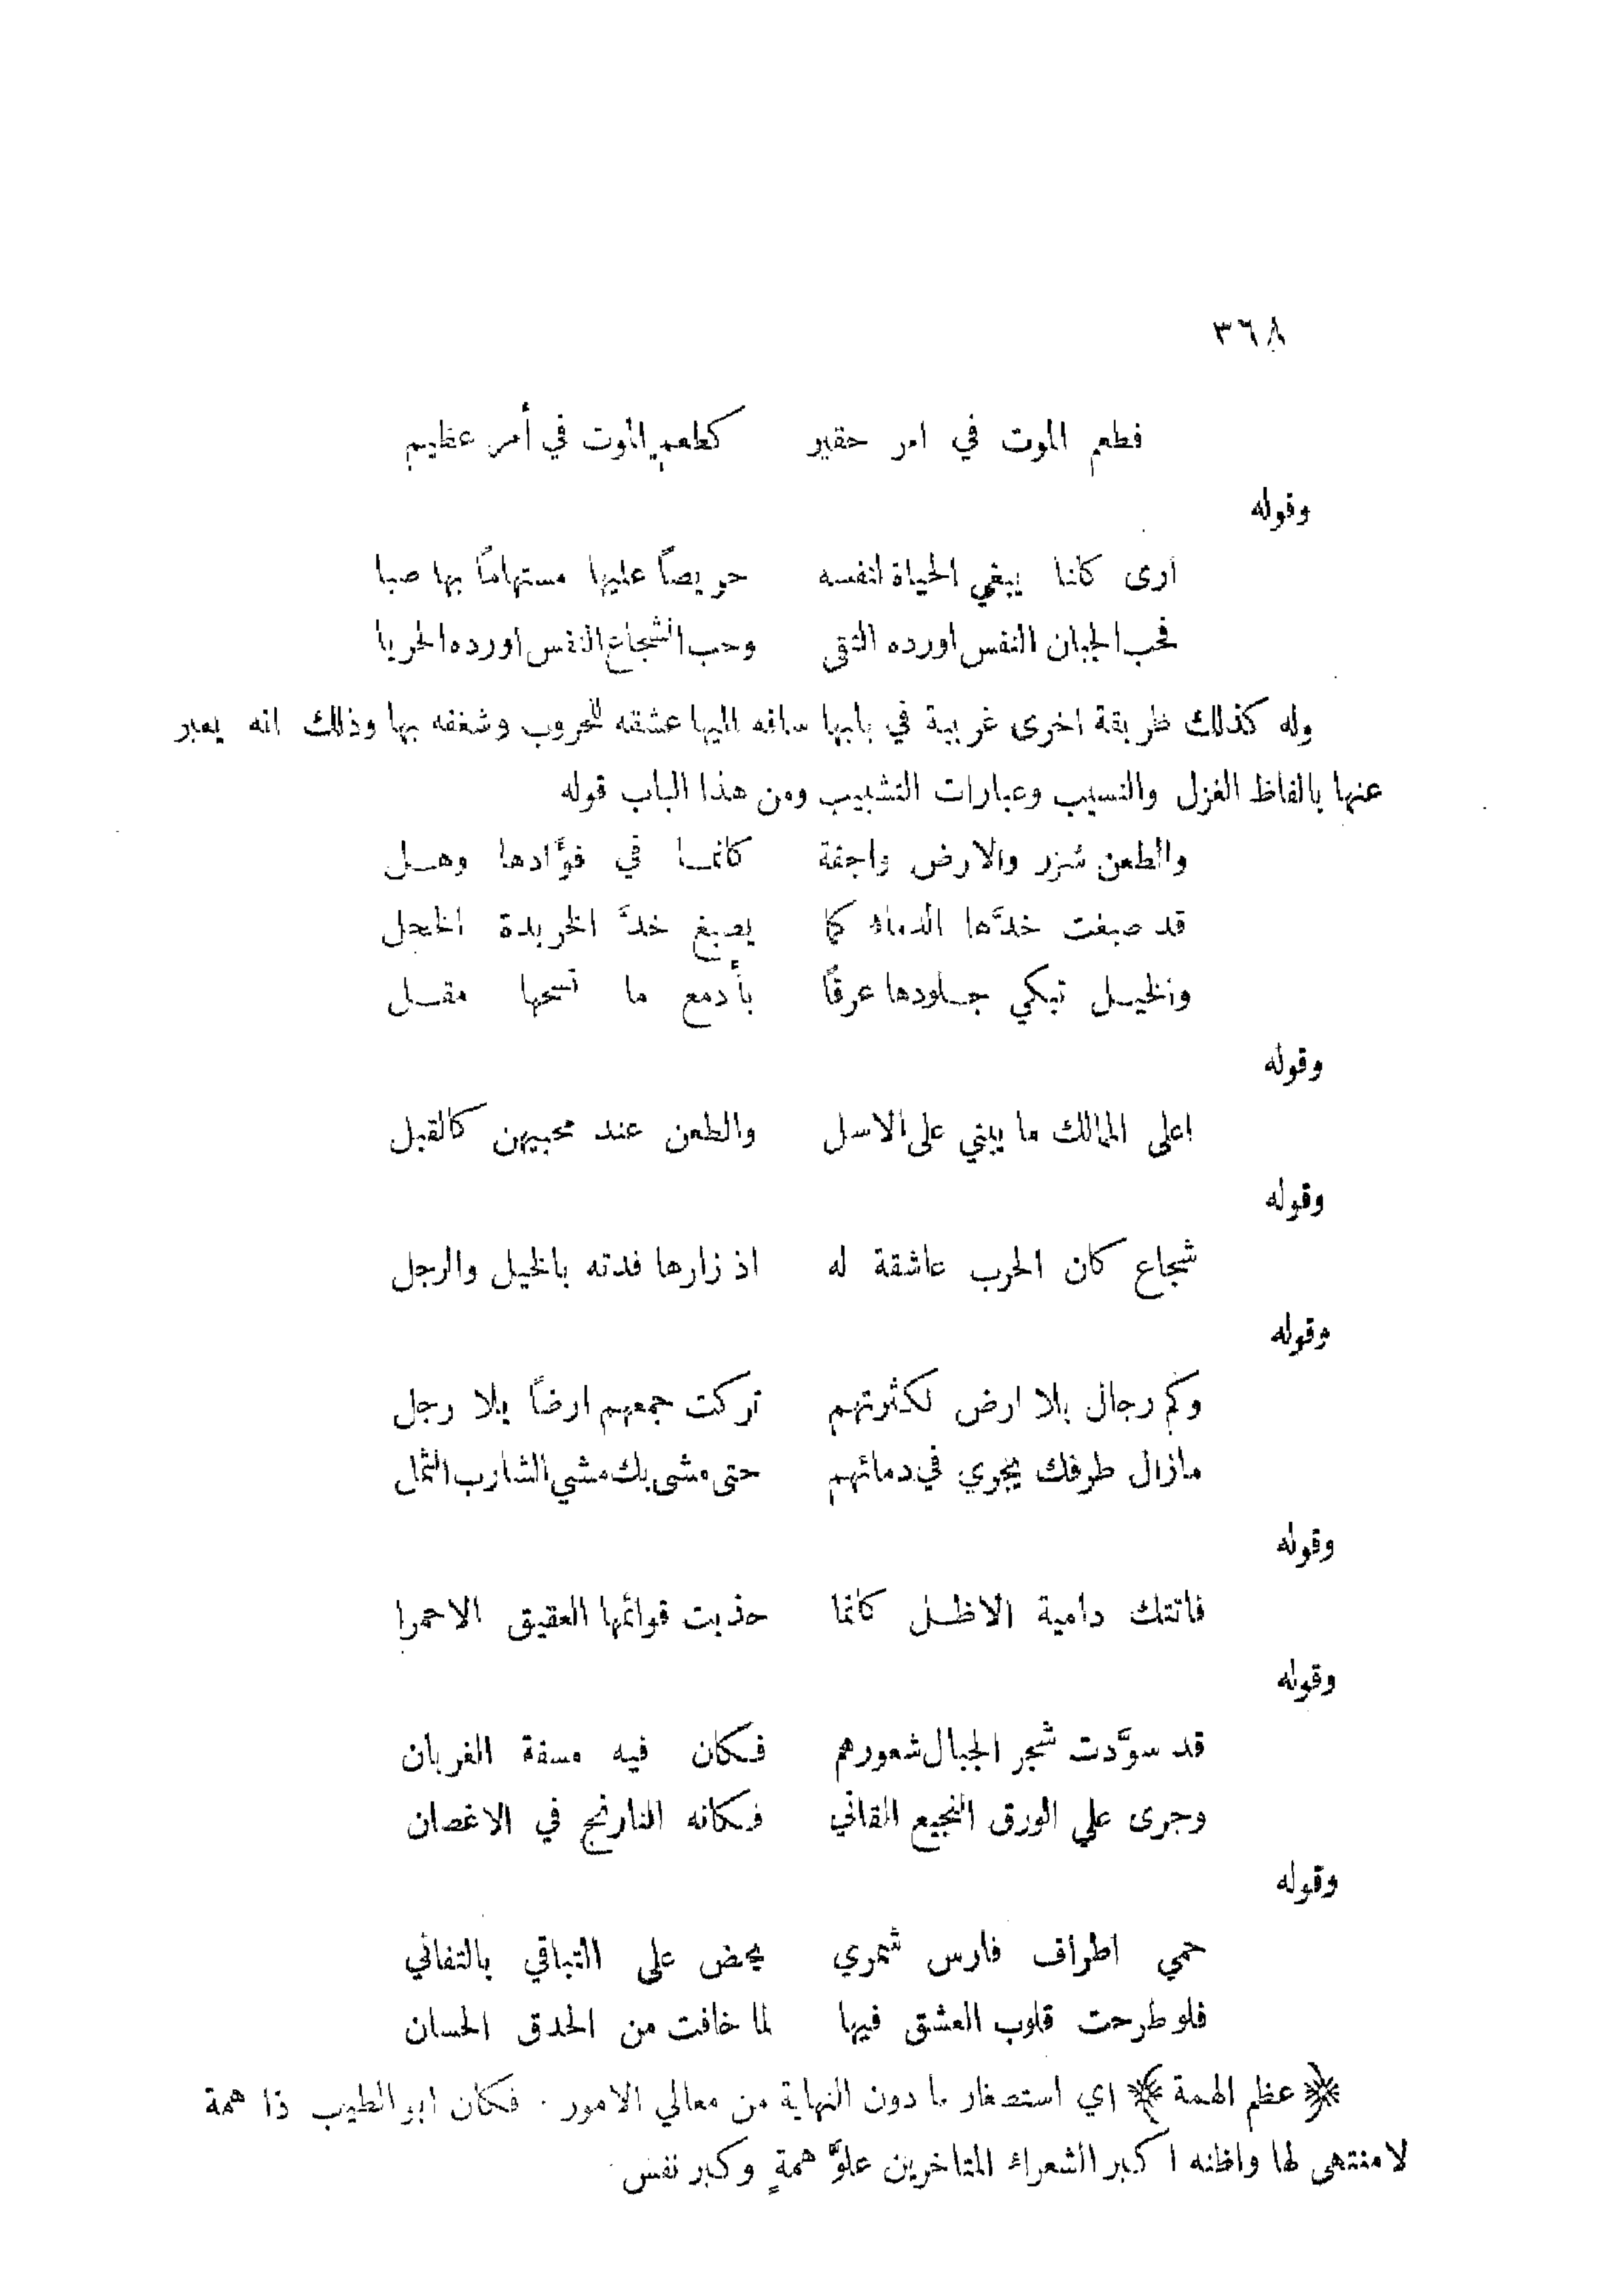 ٣٦٨
فطعم الموت في امر حقير كطعمِ الموت في أمر عظيم
وقوله
ارى كلنا يبغي الحياة لنفسه حريصاً عليها مستهاماً بها صبا
فحب الجبان النفس اورده التقى وحب الشجاع النفس اورده الحربا
وله كذلك طريقة اخرى غريبة في بابها ساقه اليها عشقه للحروب وشغفه بها وذلك انه يعبر
عنها بالفاظ الغزل والنسيب وعبارات التشبيب ومن هذا الباب قوله
والطعن شزر والارض واجفة كانما في فؤَّادها وهل
قد صبغت خدَّها الدماء كما يصبغ خدَّ الخريدة الخجل
والخيل تبكي جلودها عرقاً بأدمع ما تسحها مقل
وقوله
اعلى الممالك ما يبني على الاسل والطعن عند محبيهن كالقبل
وقوله
شجاع كان الحرب عاشقة له اذ زارها فدته بالخيل والرجل
وقوله
وكم رجال بلا ارض لكثرتهم تركت جمعهم ارضاً بلا رجل
مازال طرفك يجري في دمائهم حتى مشى بك مشي الشارب الثمل
وقوله
فاتتك دامية الاظل كانما حذيت قوائمها العقيق الاحمرا
وقوله
قد سوَّدت شجر الجبال شعورهم فكان فيه مسفة الغربان
وجرى على الورق النجيع القاني فكانه النارنج في الاغصان
وقوله
حمي اطراف فارس شمري يحض على التباقي بالتفاني
فلو طرحت قلوب العشق فيها لما خافت من الحدق الحسان
﴿ عظم الهمة ﴾ اي استصغار ما دون النهاية من معالي الامور . فكان ابو الطيب ذا همة
لا منتهى لها واظنه اكبر الشعراء المتاخرين علوَّ همةٍ وكبر نفس